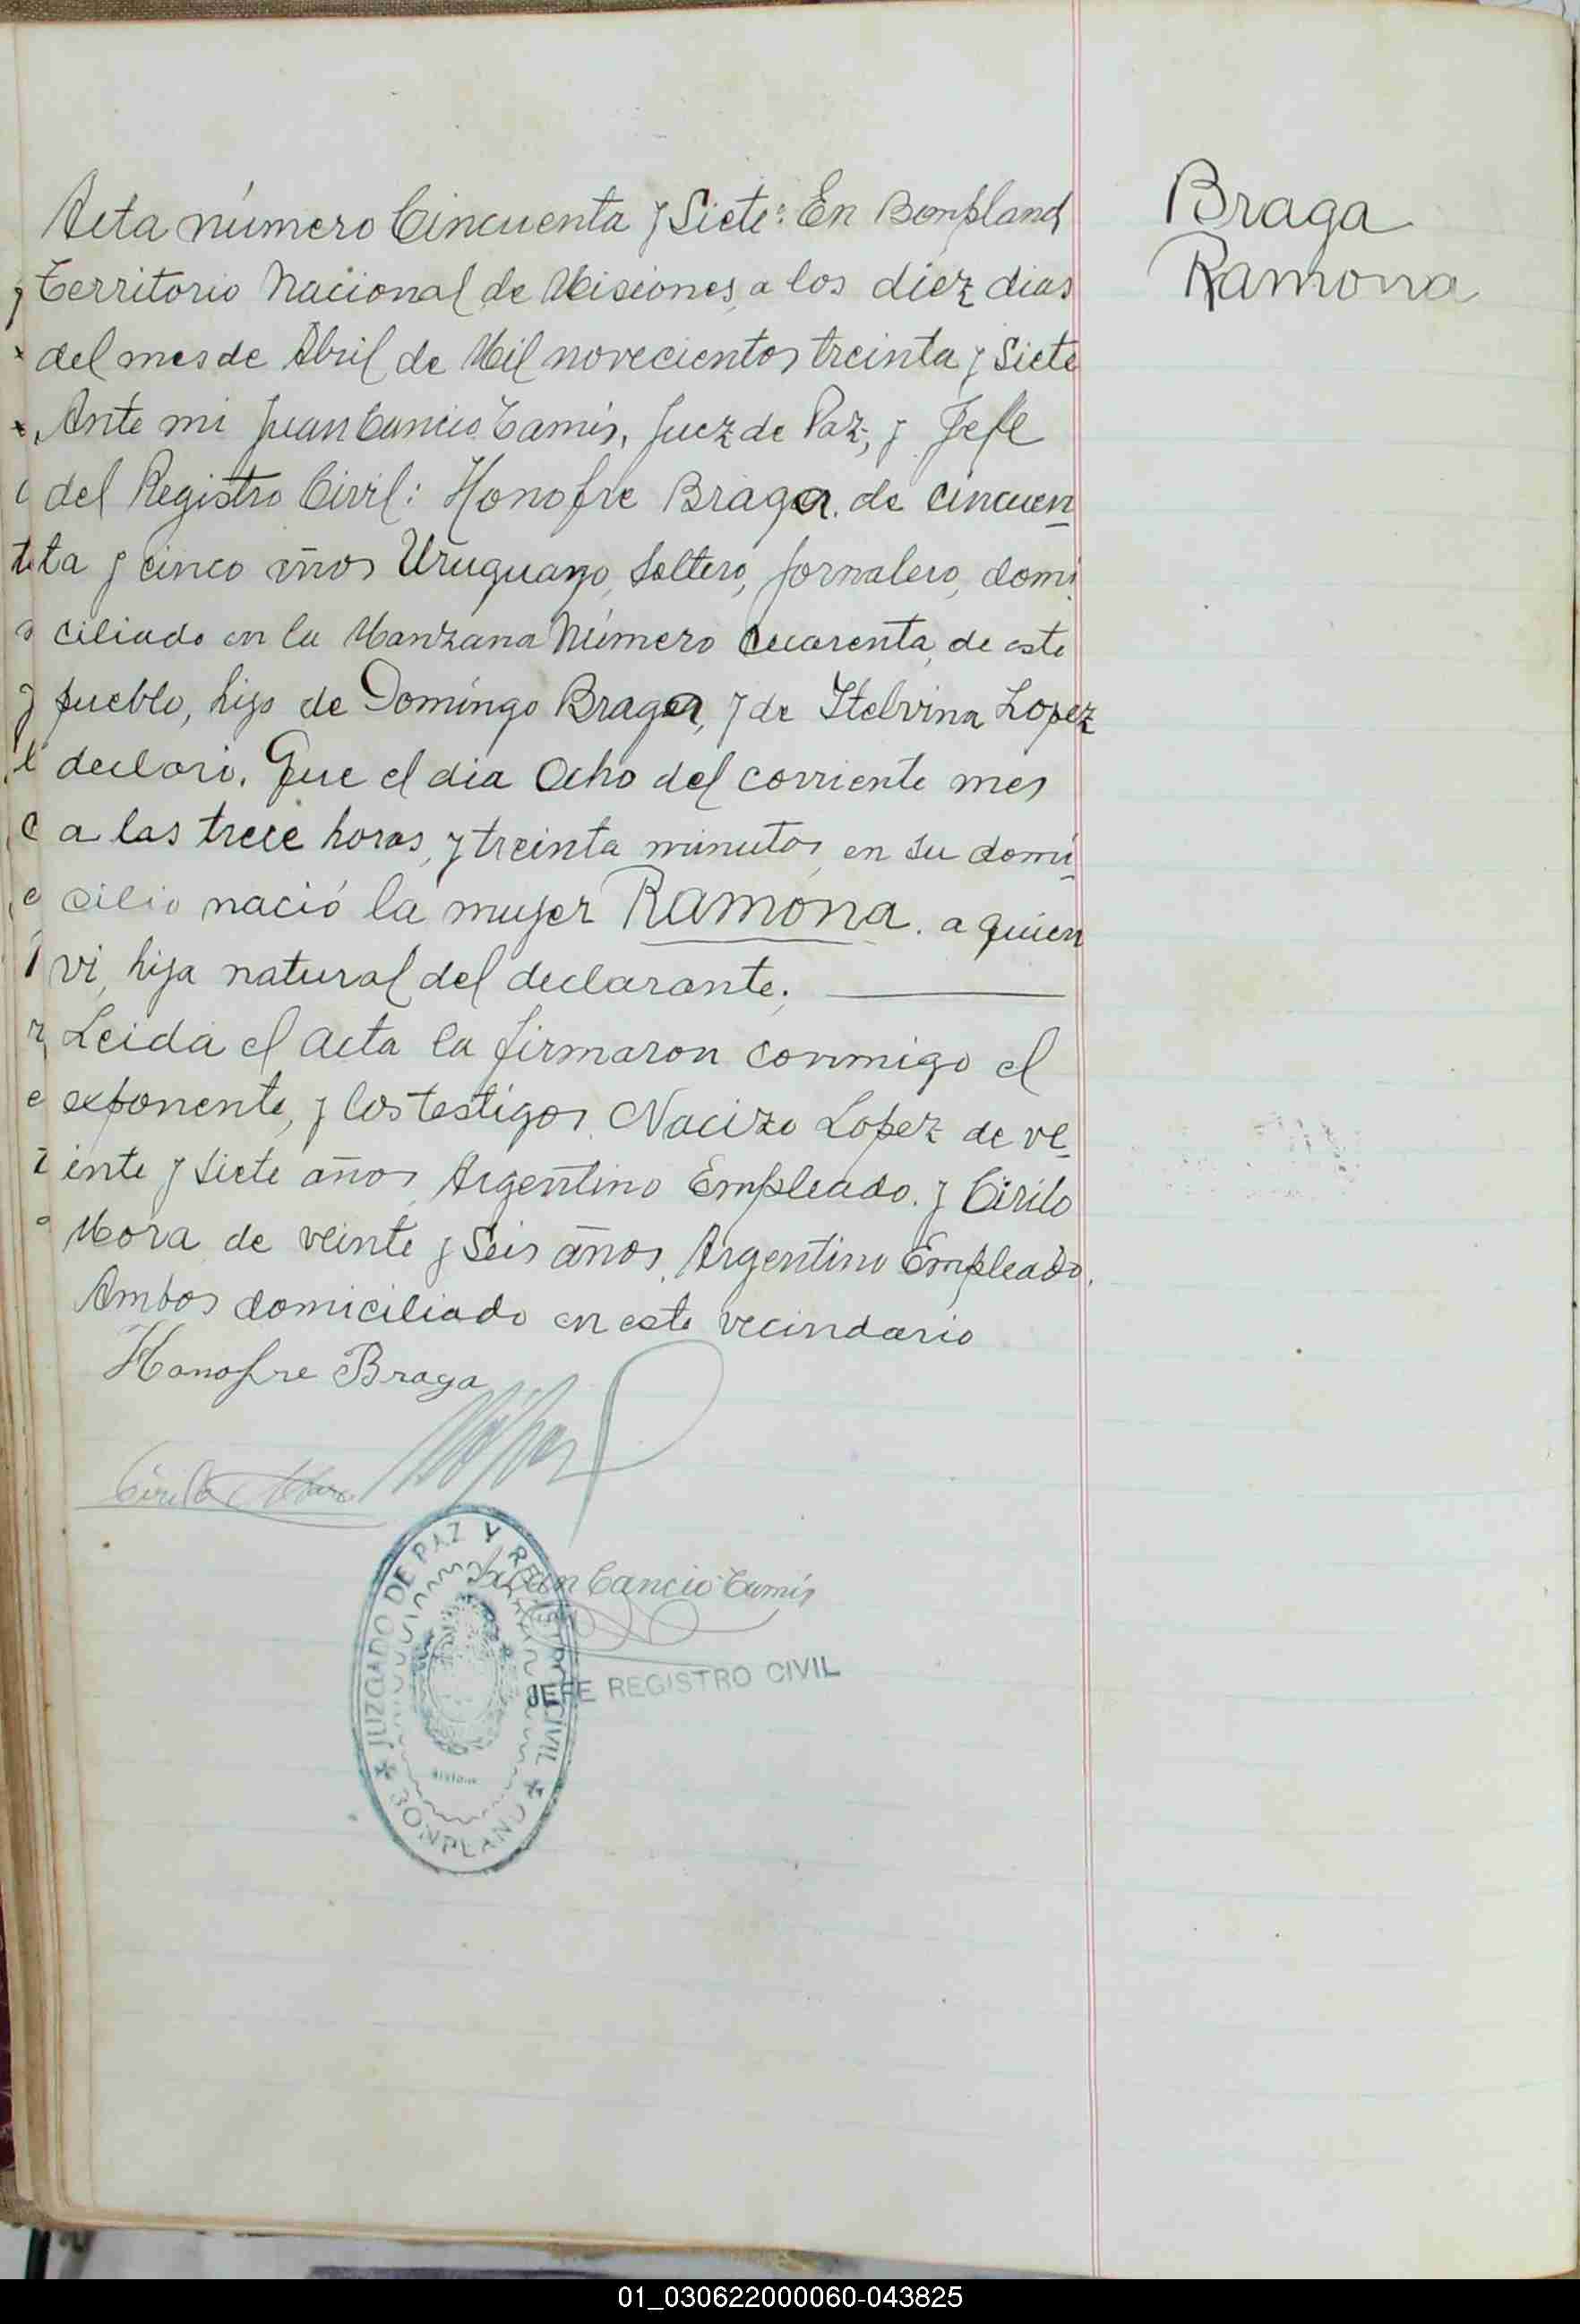 Braga
Ramona
Acta número Cincuenta y Siete: En Bonpland
Territorio Nacional de Misiones, a los diez dias
del mes de Abril de Mil novecientos treinta y Siete
Ante mi Juan Cancio Tamis, Juez de Paz, y Jefe
del Registro Civil: Honofre Braga. de cincuen
ta y cinco años Uruguayo, Soltero, Jornalero, domi
ciliado en la Manzana Número Cuarenta, de este
pueblo, hijo de Domingo Braga, y de Itelvina Lopez
declaró. Que el dia Ocho del corriente mes
a las trece horas, y treinta minutos, en su domi
cilio nació la mujer RAMONA. a quien
vi, hija natural del declarante.
Leida el acta la firmaron conmigo el
exponente, y los testigos. Nacizo Lopez de ve
inte y siete años, Argentino Empleado. y Cirilo
Mora de veinte y Seis años, Argentino Empleado.
Ambos domiciliado en este vecindario
Honofre Braga
Cirilo Mora
Juan Cancio Tamis
JEFE REGISTRO CIVIL
JUZGADO DE PAZ Y REGISTRO CIVIL
BONPLAND
01_030622000060-043825